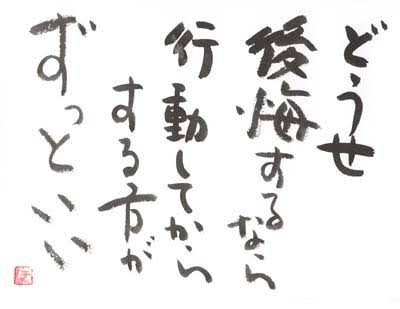 どうせ
後悔するなら
行動してから
する方が
ずっといい